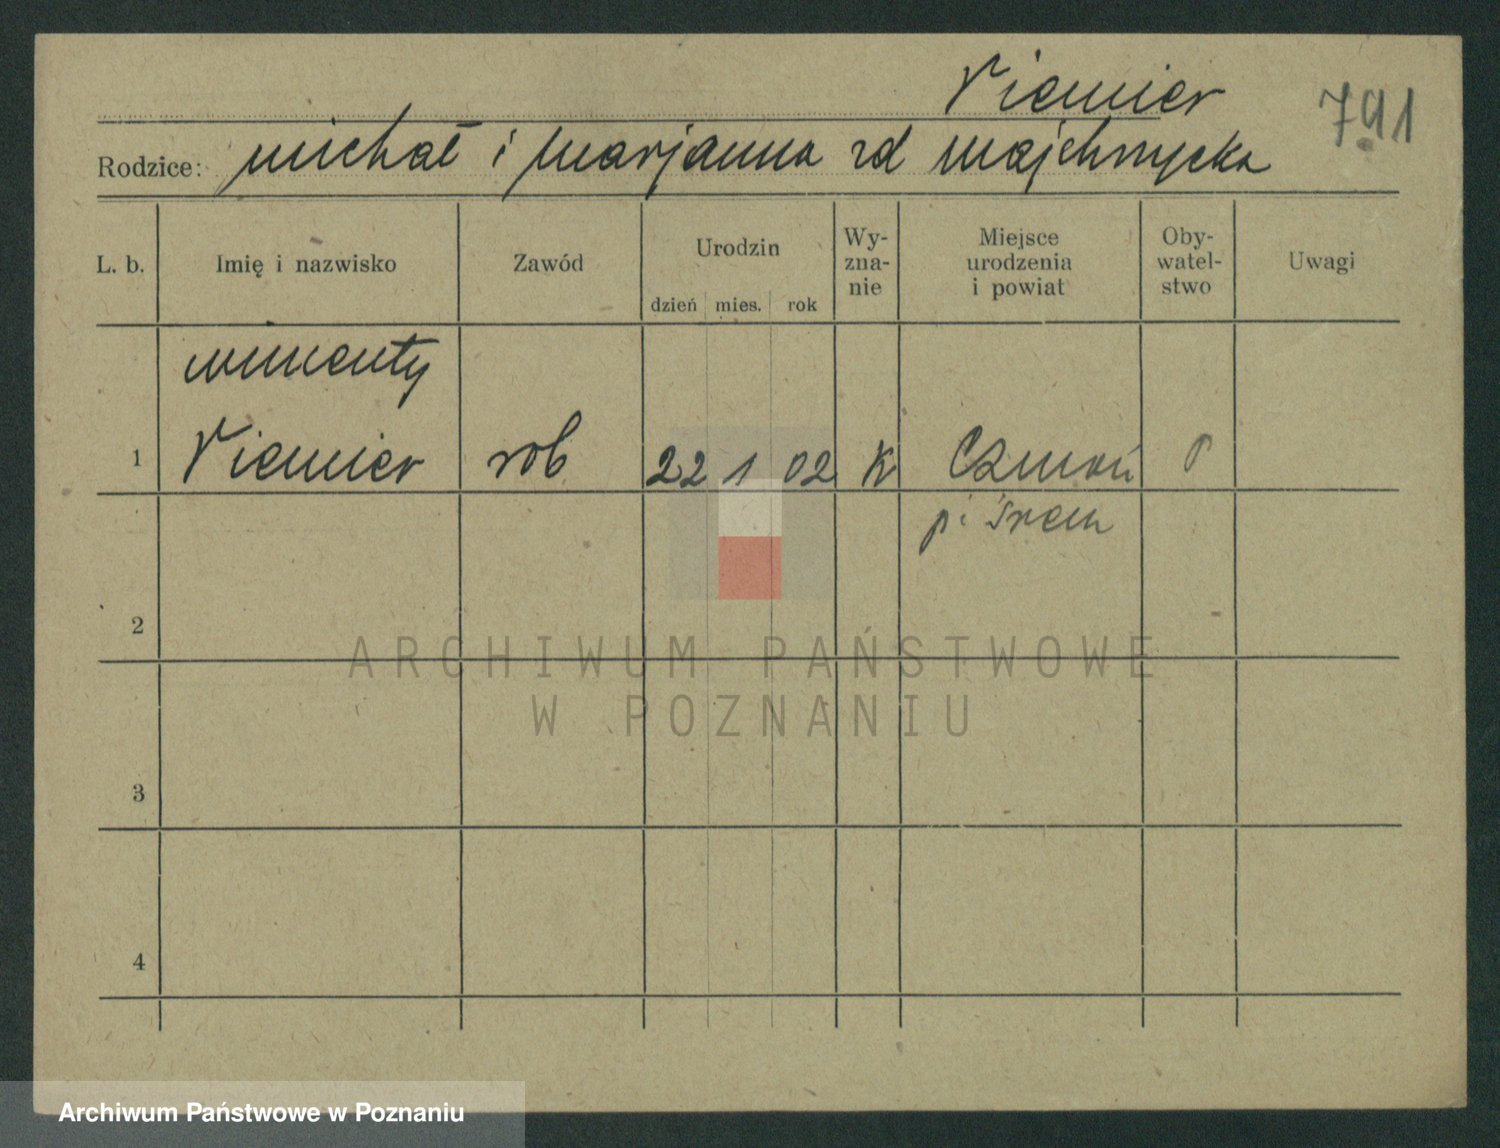 Niemier
791
Rodzice: Michał i Marjanna zd Majchrzycka
L. b. Imię i nazwisko Zawód Urodzin dzień mies. rok Wy-
zna-
nie Miejsce
urodzenia
i powiat Oby-
watel-
stwo Uwagi
Wincenty
1 Niemier rob 22 1 02 K Czmoń P
p. Śrem
2
3
4
ARCHIWUM PAŃSTWOWE
W POZNANIU
Archiwum Państwowe w Poznaniu